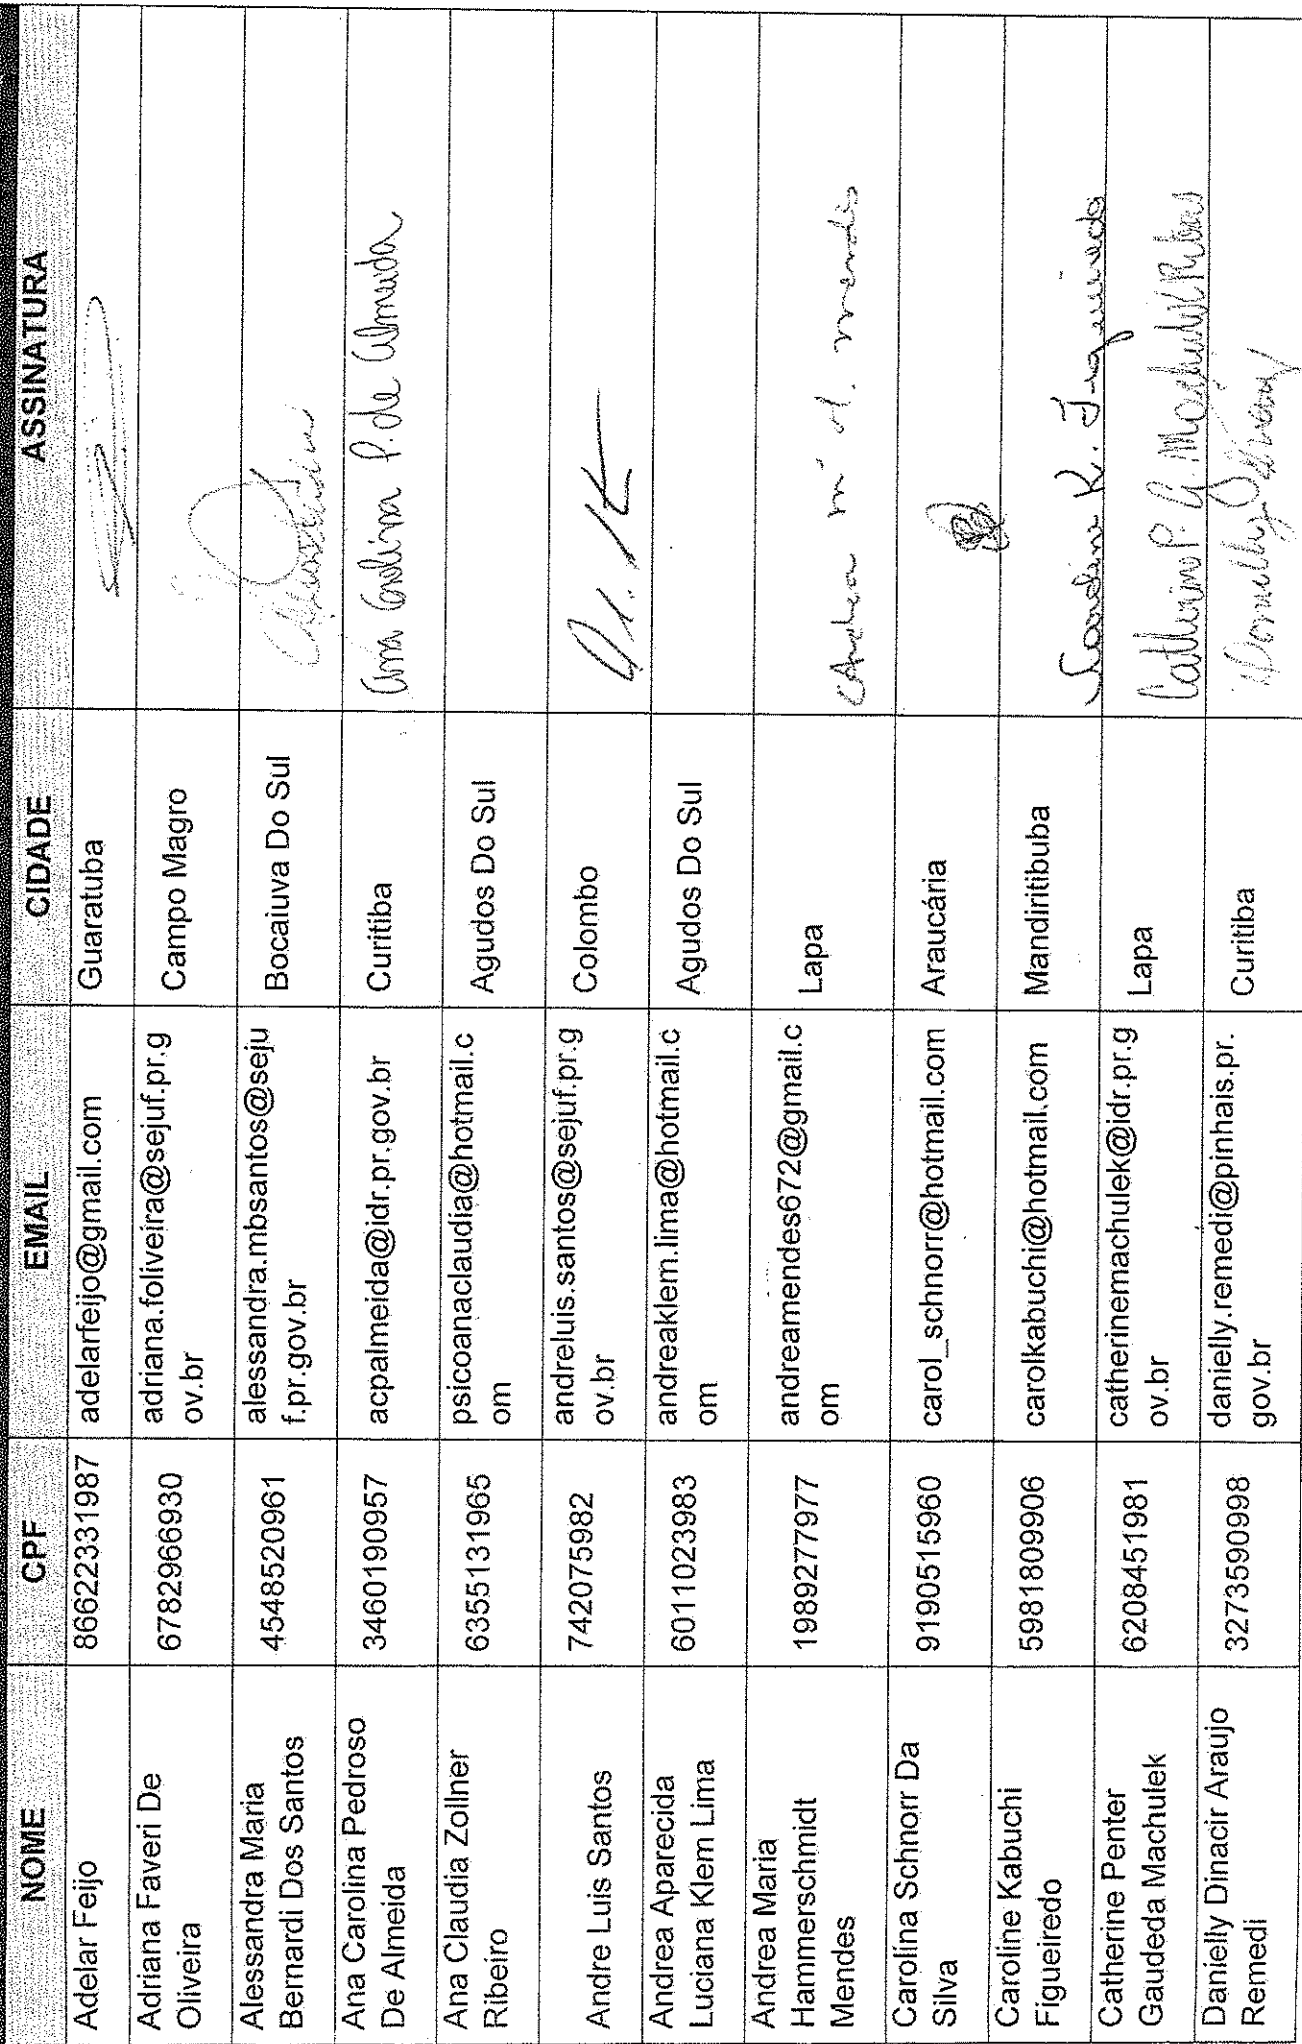 NOME CPF EMAIL CIDADE ASSINATURA
Adelar Feijo 86622331987 adelarfeijo@gmail.com Guaratuba
Adriana Faveri De
Oliveira 6782966930 adriana.foliveira@sejuf.pr.g
ov.br Campo Magro
Alessandra Maria
Bernardi Dos Santos 4548520961 alessandra.mbsantos@seju
f.pr.gov.br Bocaiuva Do Sul
Ana Carolina Pedroso
De Almeida 3460190957 acpalmeida@idr.pr.gov.br Curitiba Ana Carolina P. de Almeida
Ana Claudia Zollner
Ribeiro 6355131965 psicoanaclaudia@hotmail.c
om Agudos Do Sul
Andre Luis Santos 742075982 andreluis.santos@sejuf.pr.g
ov.br Colombo
Andrea Aparecida
Luciana Klem Lima 6011023983 andreaklem.lima@hotmail.c
om Agudos Do Sul
Andrea Maria
Hammerschmidt
Mendes 1989277977 andreamendes672@gmail.c
om Lapa Andrea Mª H. Mendes
Carolina Schnorr Da
Silva 9190515960 carol_schnorr@hotmail.com Araucária
Caroline Kabuchi
Figueiredo 5981809906 carolkabuchi@hotmail.com Mandiritibuba Caroline K. Figueiredo
Catherine Penter
Gaudeda Machulek 6208451981 catherinemachulek@idr.pr.g
ov.br Lapa Catherine P. G. Machulek Ribas
Danielly Dinacir Araujo
Remedi 3273590998 danielly.remedi@pinhais.pr.
gov.br Curitiba Danielly